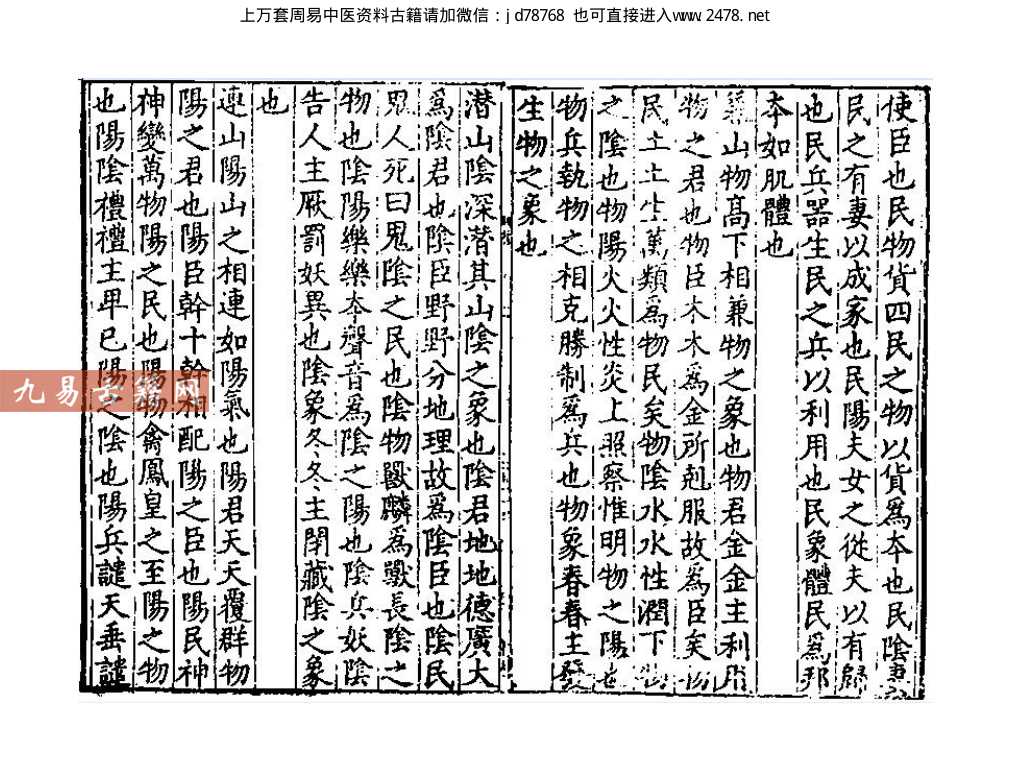 上万套周易中医资料古籍请加微信：jd78768 也可直接进入www.2478.net
使臣也民物貨四民之物以貨爲本也民陰妻
民之有妻以成家也民陽夫女之從夫以有歸
也民兵器生民之兵以利用也民象體民爲邦
本如肌體也
兼山物高下相兼物之象也物君金金主利用
物之君也物臣木木爲金所剋服故爲臣矣物
民土土生萬類爲物民矣物陰水水性潤下物
之陰也物陽火火性炎上照察惟明物之陽也
物兵執物之相克勝制爲兵也物象春春主發
生物之象也
潜山陰深潜其山陰之象也陰君地地德廣大
爲陰君也陰臣野野分地理故爲陰臣也陰民
鬼人死曰鬼陰之民也陰物獸麟爲獸長陰之
物也陰陽樂樂本聲音爲陰之陽也陰兵妖陰
告人主厥罰妖異也陰象冬冬主閉藏陰之象
也
連山陽山之相連如陽氣也陽君天天覆群物
陽之君也陽臣幹十幹相配陽之臣也陽民神
神變萬物陽之民也陽物禽鳳皇之至陽之物
也陽陰禮禮主卑已陽之陰也陽兵譴天垂譴
九易古籍网